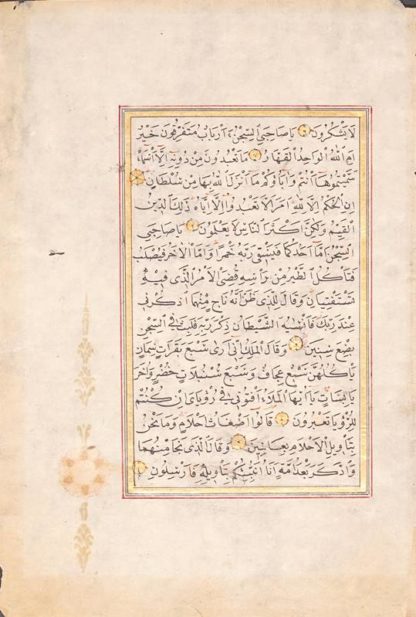 لَا يَشْكُرُونَ يَا صَاحِبَيِ السِّجْنِ ءَاَرْبَابٌ مُتَفَرِّقُونَ خَيْرٌ
اَمِ اللّٰهُ الْوَاحِدُ الْقَهَّارُ مَا تَعْبُدُونَ مِنْ دُونِهِ اِلَّا اَسْمَاءً
سَمَّيْتُمُوهَا اَنْتُمْ وَاٰبَاؤُكُمْ مَا اَنْزَلَ اللّٰهُ بِهَا مِنْ سُلْطَانٍ
اِنِ الْحُكْمُ اِلَّا لِلّٰهِ اَمَرَ اَلَّا تَعْبُدُوا اِلَّا اِيَّاهُ ذٰلِكَ الدِّينُ
الْقَيِّمُ وَلٰكِنَّ اَكْثَرَ النَّاسِ لَا يَعْلَمُونَ يَا صَاحِبَيِ
السِّجْنِ اَمَّا اَحَدُكُمَا فَيَسْقِي رَبَّهُ خَمْرًا وَاَمَّا الْاٰخَرُ فَيُصْلَبُ
فَتَأْكُلُ الطَّيْرُ مِنْ رَأْسِهِ قُضِيَ الْاَمْرُ الَّذِي فِيهِ
تَسْتَفْتِيَانِ وَقَالَ لِلَّذِي ظَنَّ اَنَّهُ نَاجٍ مِنْهُمَا اذْكُرْنِي
عِنْدَ رَبِّكَ فَاَنْسٰيهُ الشَّيْطَانُ ذِكْرَ رَبِّهِ فَلَبِثَ فِي السِّجْنِ
بِضْعَ سِنِينَ وَقَالَ الْمَلِكُ اِنِّي اَرٰى سَبْعَ بَقَرَاتٍ سِمَانٍ
يَأْكُلُهُنَّ سَبْعٌ عِجَافٌ وَسَبْعَ سُنْبُلَاتٍ خُضْرٍ وَاُخَرَ
يَابِسَاتٍ يَا اَيُّهَا الْمَلَأُ اَفْتُونِي فِي رُؤْيَايَ اِنْ كُنْتُمْ
لِلرُّؤْيَا تَعْبُرُونَ قَالُوا اَضْغَاثُ اَحْلَامٍ وَمَا نَحْنُ
بِتَأْوِيلِ الْاَحْلَامِ بِعَالِمِينَ وَقَالَ الَّذِي نَجَا مِنْهُمَا
وَادَّكَرَ بَعْدَ اُمَّةٍ اَنَا اُنَبِّئُكُمْ بِتَأْوِيلِهِ فَاَرْسِلُونِ